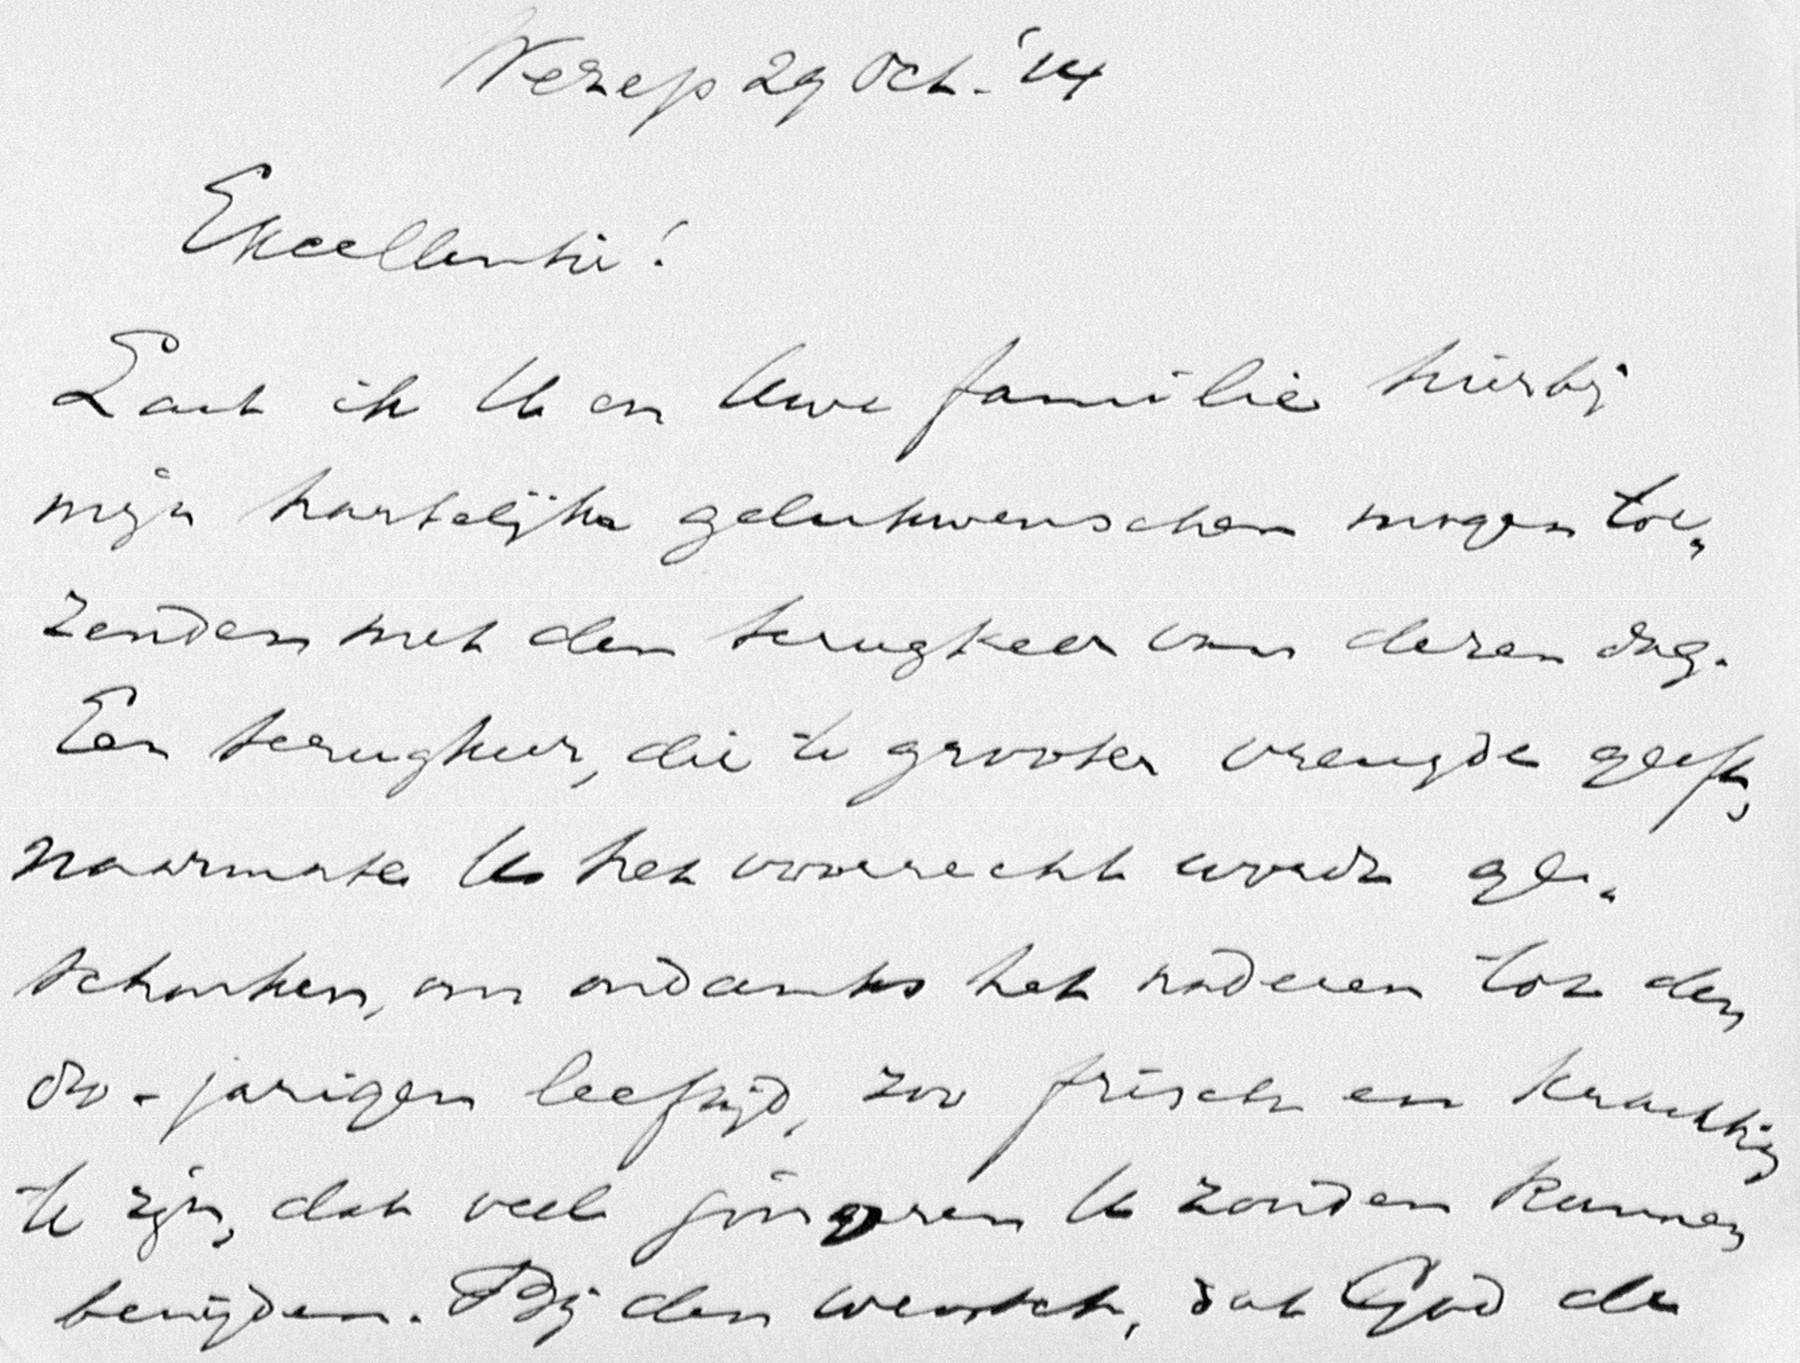 Nerep 29 Oct. '14
Excellentie!
Laat ik U en Uwe familie hierbij
mijn hartelijke gelukwenschen mogen toe„
zenden met den terugkeer van dezen dag.
Een terugkeer, die te grooter vreugde geeft,
naarmate U het voorrecht wordt ge„
schonken, om ondanks het naderen tot den
80-jarigen leeftijd, zoo frisch en krachtig
te zijn, dat veel jongeren U zouden kunnen
benijden. Bij den wensch, dat God de